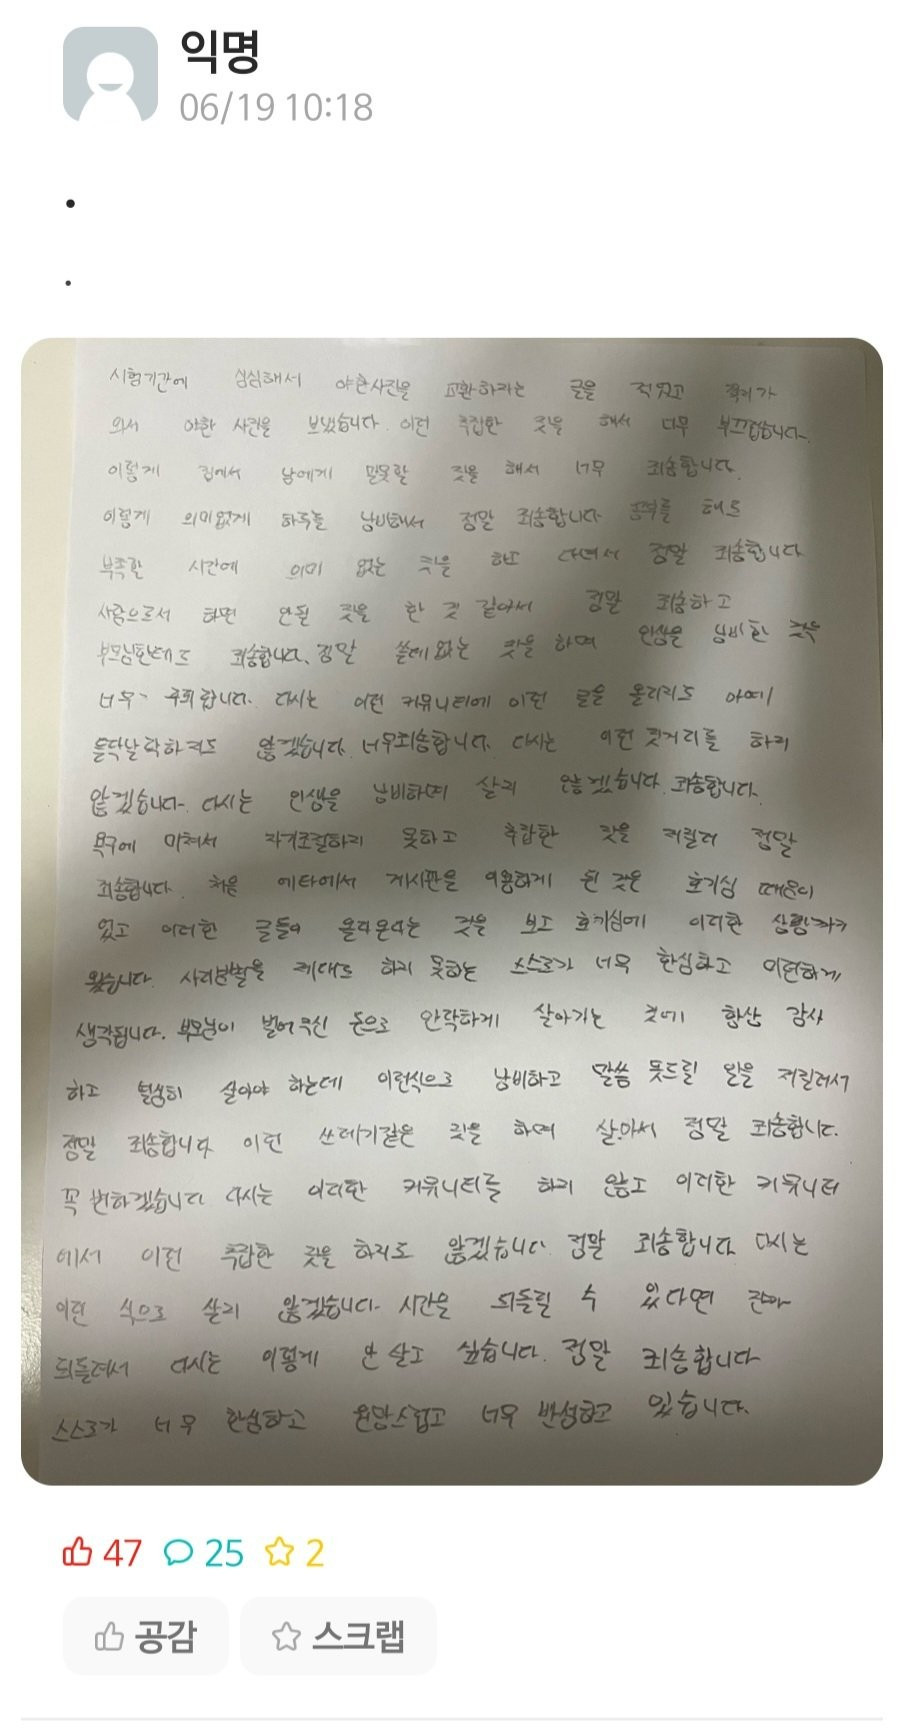 익명
06/19 10:18
.
.
시험기간에 심심해서 야한사진을 교환하자는 글을 적었고 쪽지가
와서 야한 사진을 보냈습니다. 이런 추잡한 짓을 해서 너무 부끄럽습니다.
이렇게 집에서 남에게 말못할 짓을 해서 너무 죄송합니다.
이렇게 의미없게 하루를 낭비해서 정말 죄송합니다 공부를 해도
부족할 시간에 의미 없는 짓을 하고 다녀서 정말 죄송합니다
사람으로서 하면 안될 짓을 한 것 같아서 정말 죄송하고
부모님한테도 죄송합니다. 정말 쓸데없는 짓을 하며 인생을 낭비한 것을
너무 후회합니다. 다시는 이런 커뮤니티에 이런 글을 올리지도 아예
들락날락하지도 않겠습니다. 너무죄송합니다. 다시는 이런 짓거리를 하지
않겠습니다. 다시는 인생을 낭비하며 살지 않겠습니다. 죄송합니다.
욕구에 미쳐서 자기조절하지 못하고 추잡한 짓을 저질러 정말
죄송합니다. 처음 에타에서 게시판을 이용하게 된 것은 호기심 때문이
었고 이러한 글들이 올라온다는 것을 보고 호기심에 이러한 상황까지
왔습니다. 사리분별을 제대로 하지 못하는 스스로가 너무 한심하고 미련하게
생각됩니다. 부모님이 벌어주신 돈으로 안락하게 살아가는 것에 항상 감사
하고 열심히 살아야 하는데 이런식으로 낭비하고 말씀 못드릴 일을 저질러서
정말 죄송합니다 이런 쓰레기같은 짓을 하며 살아서 정말 죄송합니다.
꼭 변하겠습니다 다시는 이러한 커뮤니티를 하지 않고 이러한 커뮤니티
에서 이런 추잡한 짓을 하지도 않겠습니다. 정말 죄송합니다 다시는
이런 식으로 살지 않겠습니다. 시간을 되돌릴 수 있다면
되돌려서 다시는 이렇게 안 살고 싶습니다. 정말 죄송합니다
스스로가 너무 한심하고 원망스럽고 너무 반성하고 있습니다.
47 25 2
공감 스크랩